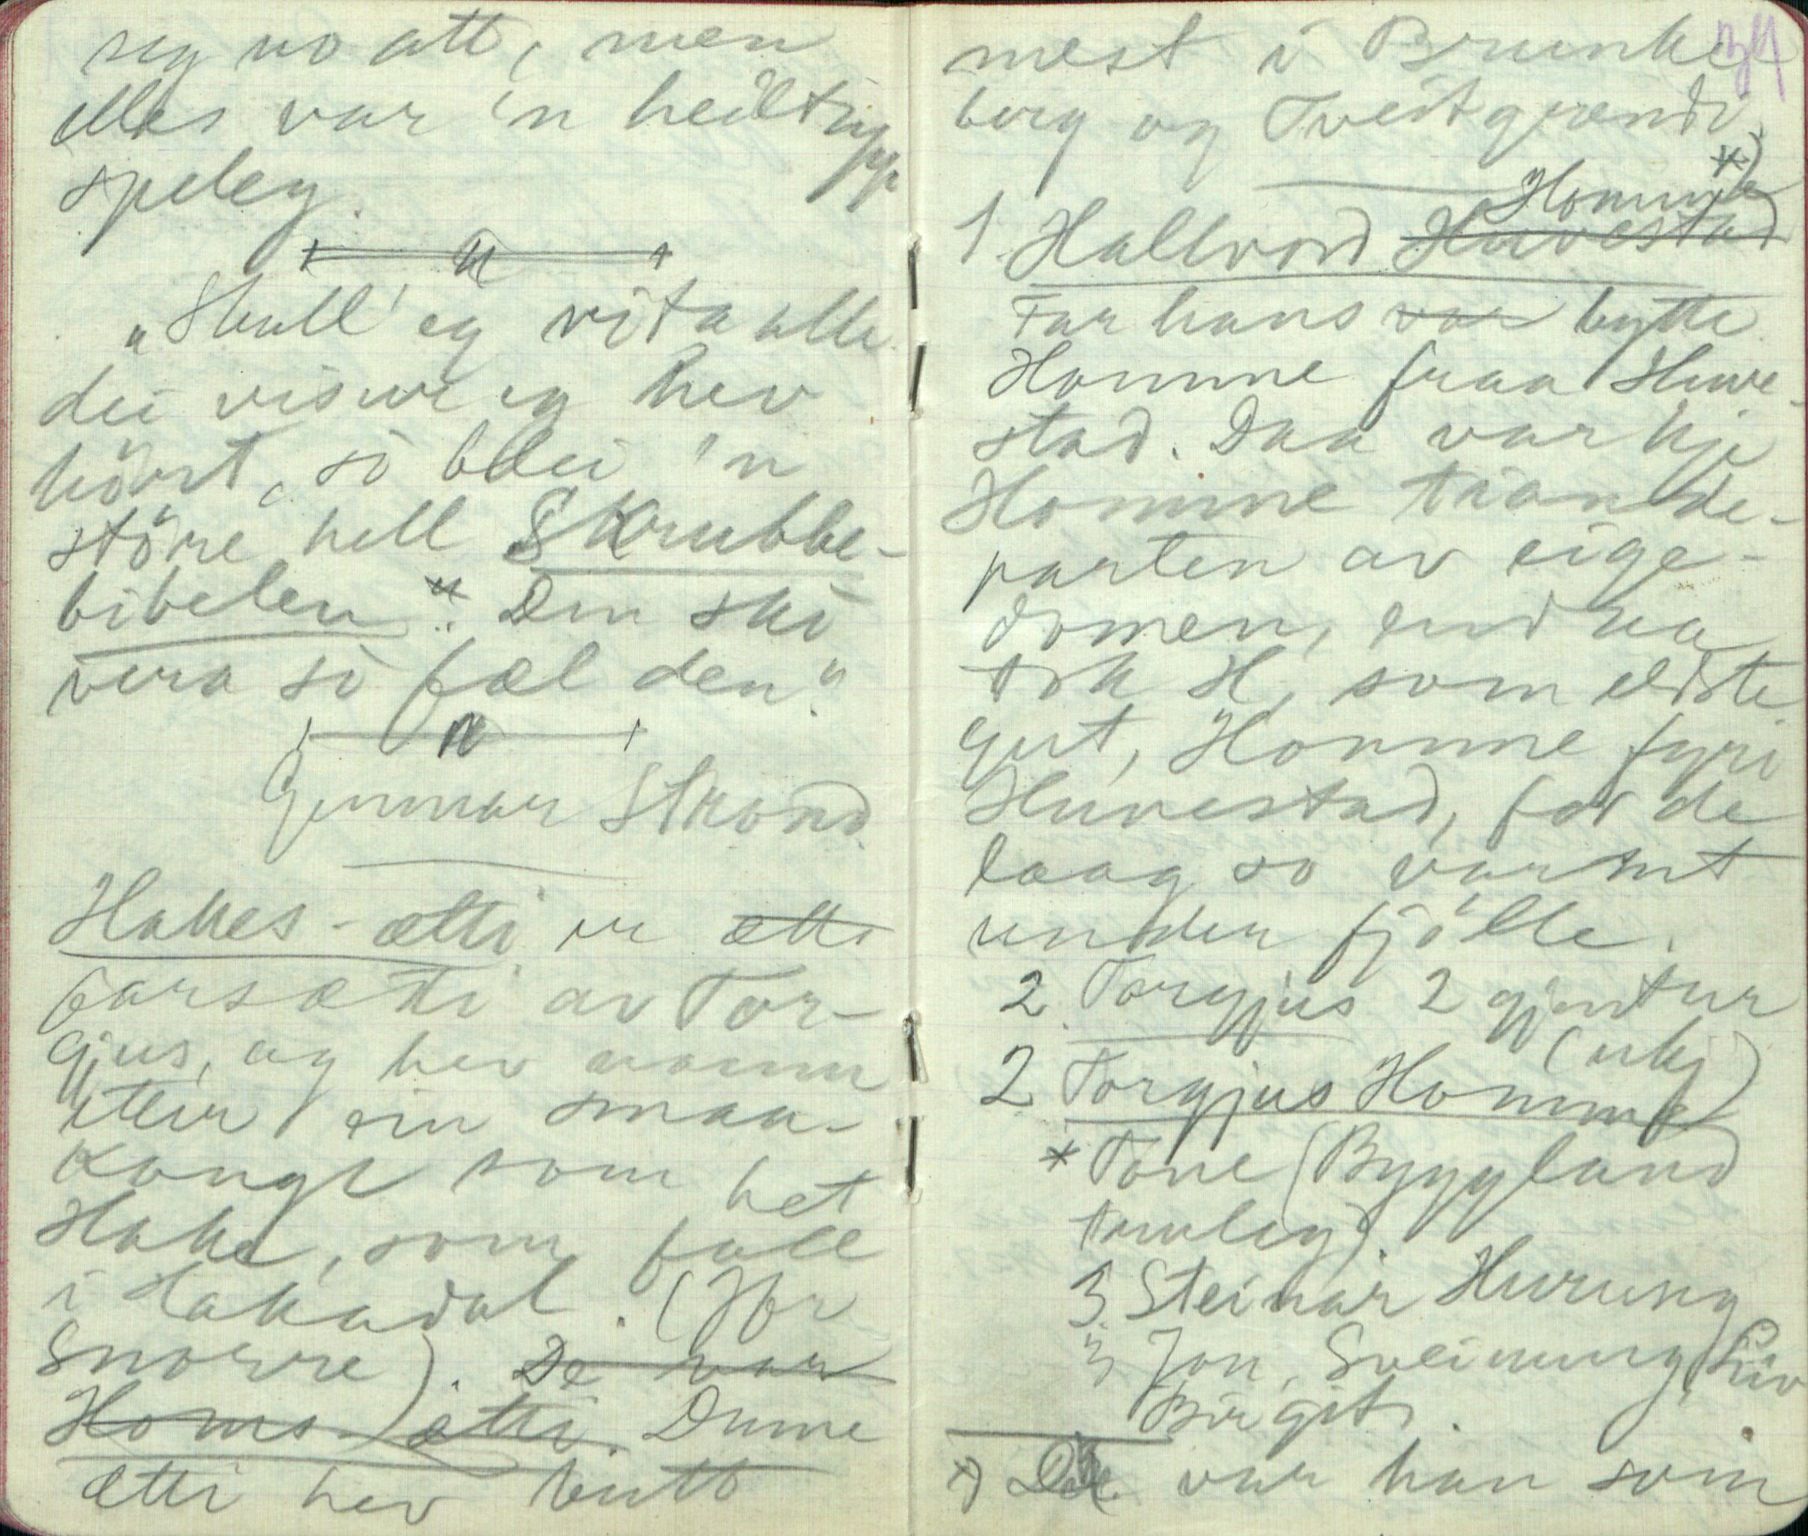 seg no att, men
elles var 'n heilt
speleg.
"Skull' eg vita alle
dei visur eg hev
höyrt, so blei 'n
störe hell Skrubbe-
bibelen". Den sko
vera so fæl den."
Gunnar Strond.
Hakes-ætti er ætti
farsætti av Tor-
gjus, og hev namn
etter ein smaa-
konge som het
Hake, som fall
i Hakadal. (Jfr
Snorre). De var
Homs-ætti. Denne
ætti hev butt
34
mest i Brunke
berg og Tveitgrendi
Homme *)
1. Hallvord Huvestad
Far hans var bytte
Homme fraa Huve-
stad. Daa var kje
Homme tiande-
parten av eige-
domen, endaa
tok H, som eldste
gut, Homme fyri
Huvestad, for de
laag so varmt
under fjölle.
2. Torgjus 2 gjentur
(ukj)
2 Torgjus Homme
* Tone (Byggland
truleg).
3. Steinar Hurung
3 Jon, Sveinung, Liv
Birgit.
*) De var han som